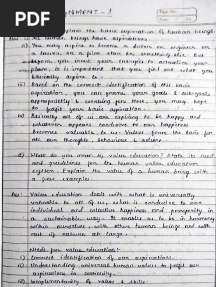 PDF
NMENT - 1
the basic aspiration of human beings
human beings have aspirations.
i) You may aspire to become a doctor, an engineer or
Basically aspire to.
ii) Based on the correct identification of this basic
aspiration, you can frame your goals & sub-goals
appropriately & working for them, you may hope
to fulfil your basic aspiration.
iii) Basically all of us are aspiring to be happy and
whatever appears conducive to our happiness
becomes valuable to us. Values form the basis for
all our thoughts, behaviour & actions.
What do you mean by value education? State its need
and guidelines for the human value education
system. Explain the value of a human being with
a few example.
Ans: Value education deals with what is universally
valuable to all of us, what is conducive to our
individual and collective happiness and prosperity in
a sustainable way. It enables us to be in harmony
within ourselves, with other human beings and with
rest of nature at large.
Needs for value education:
i) Correct identification of our aspirations.
ii) Understanding universal human values to fulfil our
aspirations in continuity.
iii) Complementarity of value & skills.